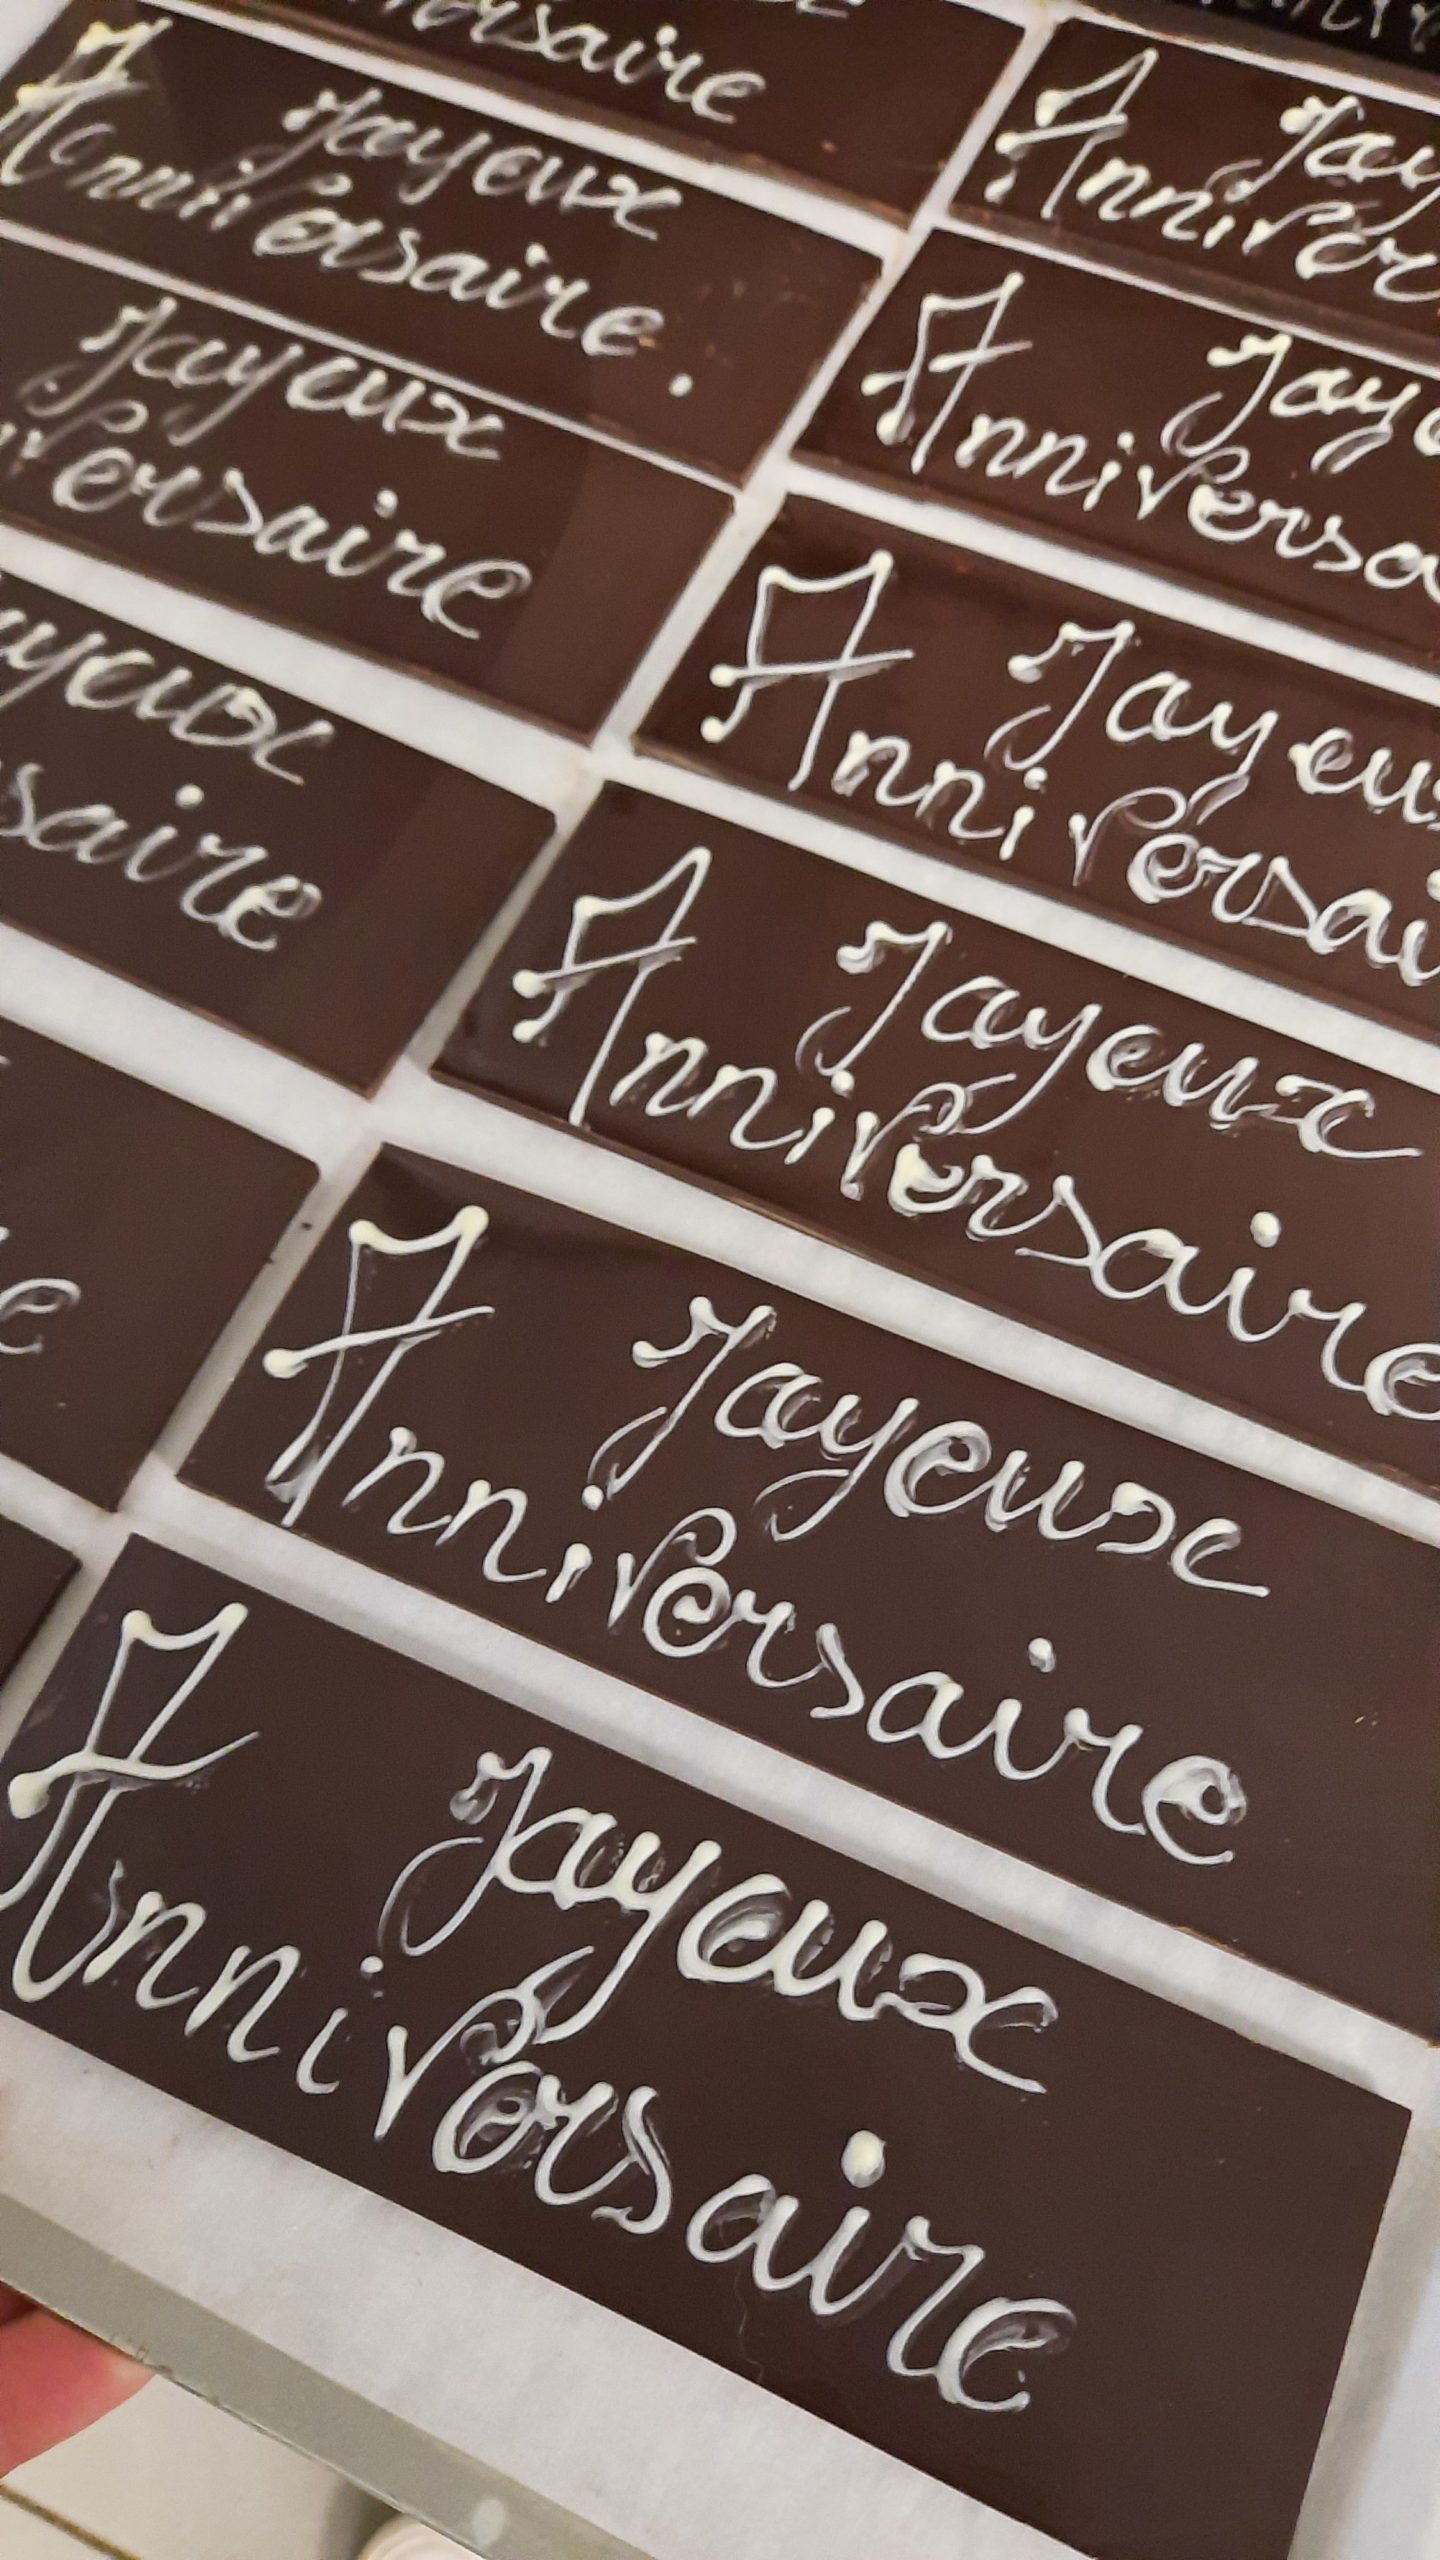 ersaire
Joyeux
Anniversaire.
Joyeux
versaire
yeux
saire
Joy
Anniver
Joye
Anniversa
Joyeux
Anniversai
Joyeux
Anniversaire
Joyeux
Anniversaire
Joyeux
Anniversaire